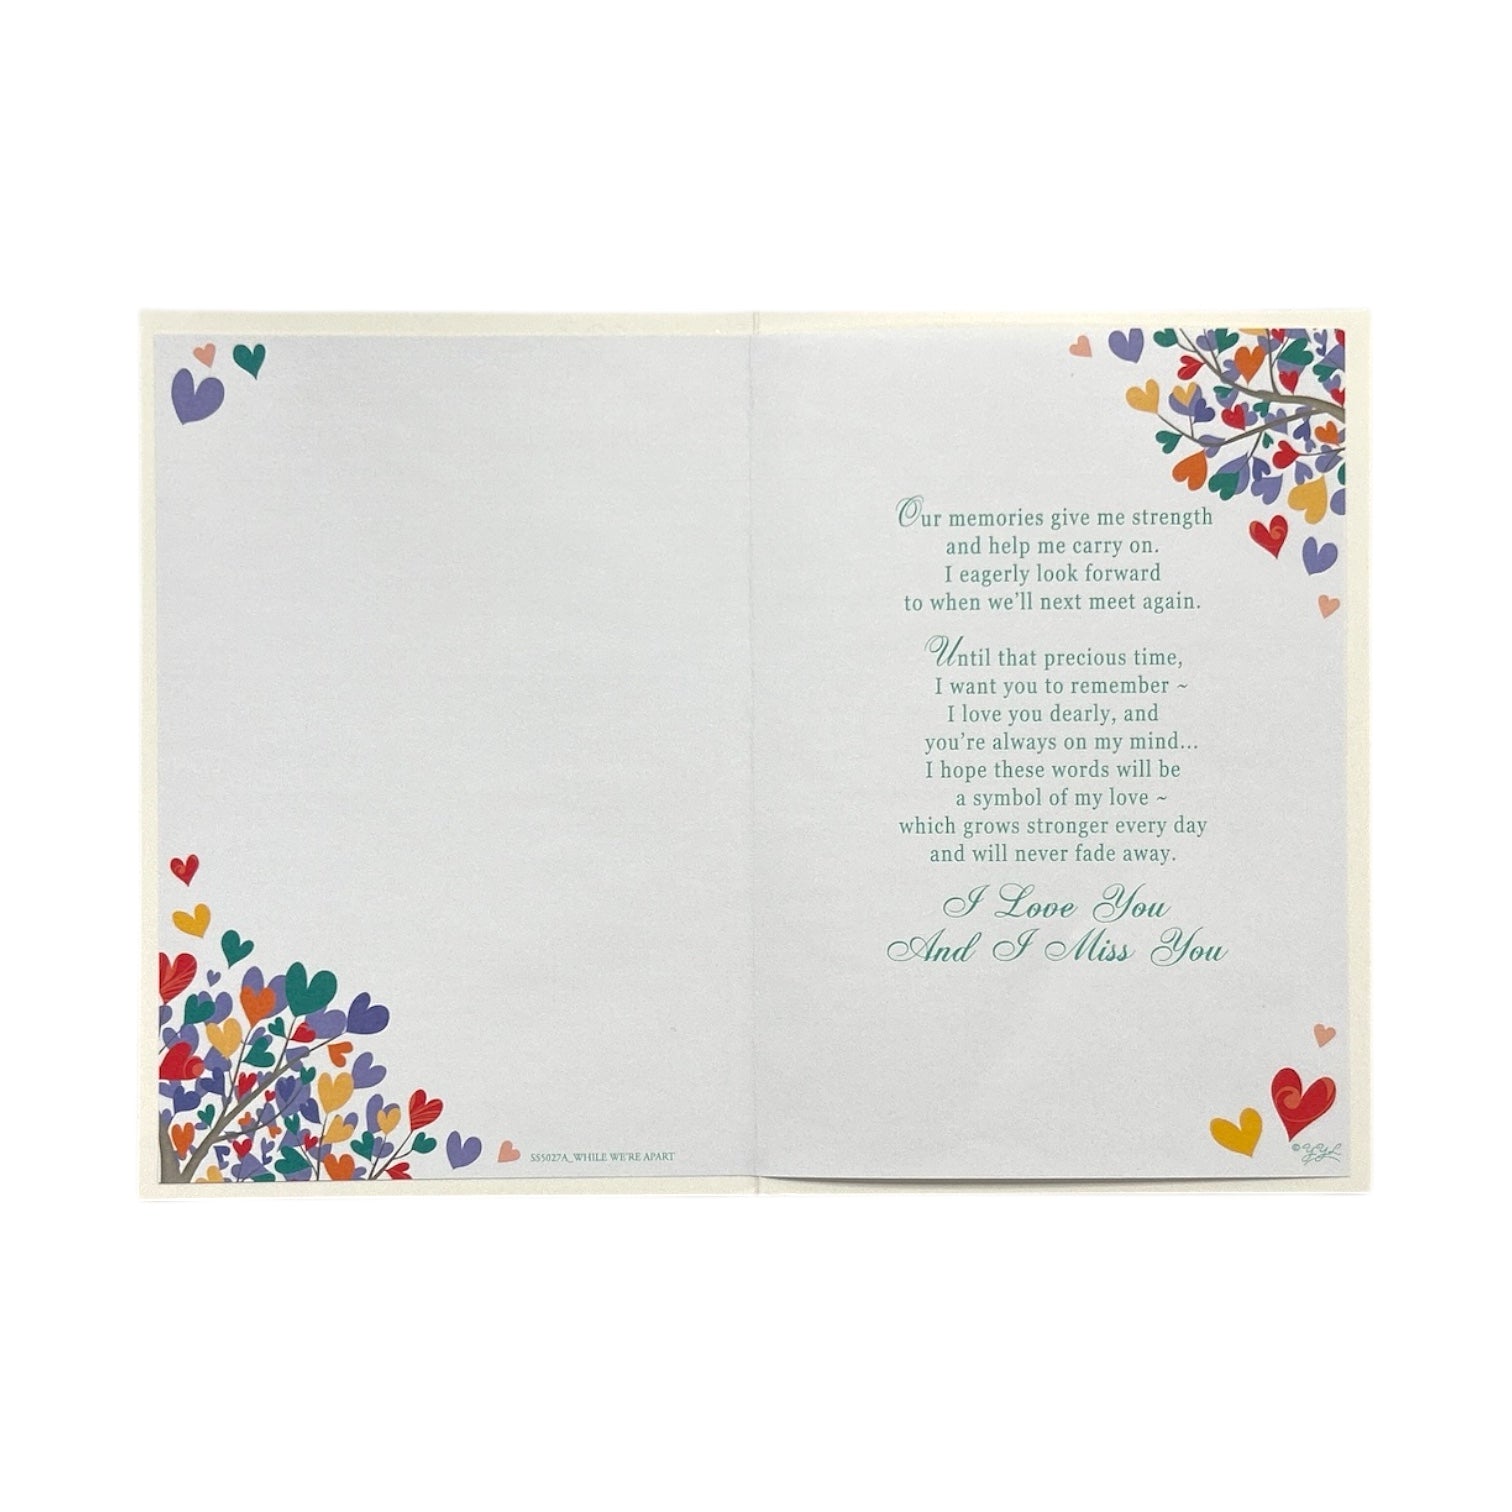 Our memories give me strength
and help me carry on.
I eagerly look forward
to when we'll next meet again.
Until that precious time,
I want you to remember ~
I love you dearly, and
you're always on my mind...
I hope these words will be
a symbol of my love ~
which grows stronger every day
and will never fade away.
I Love You
And I Miss You
SS5027A_WHILE WE'RE APART